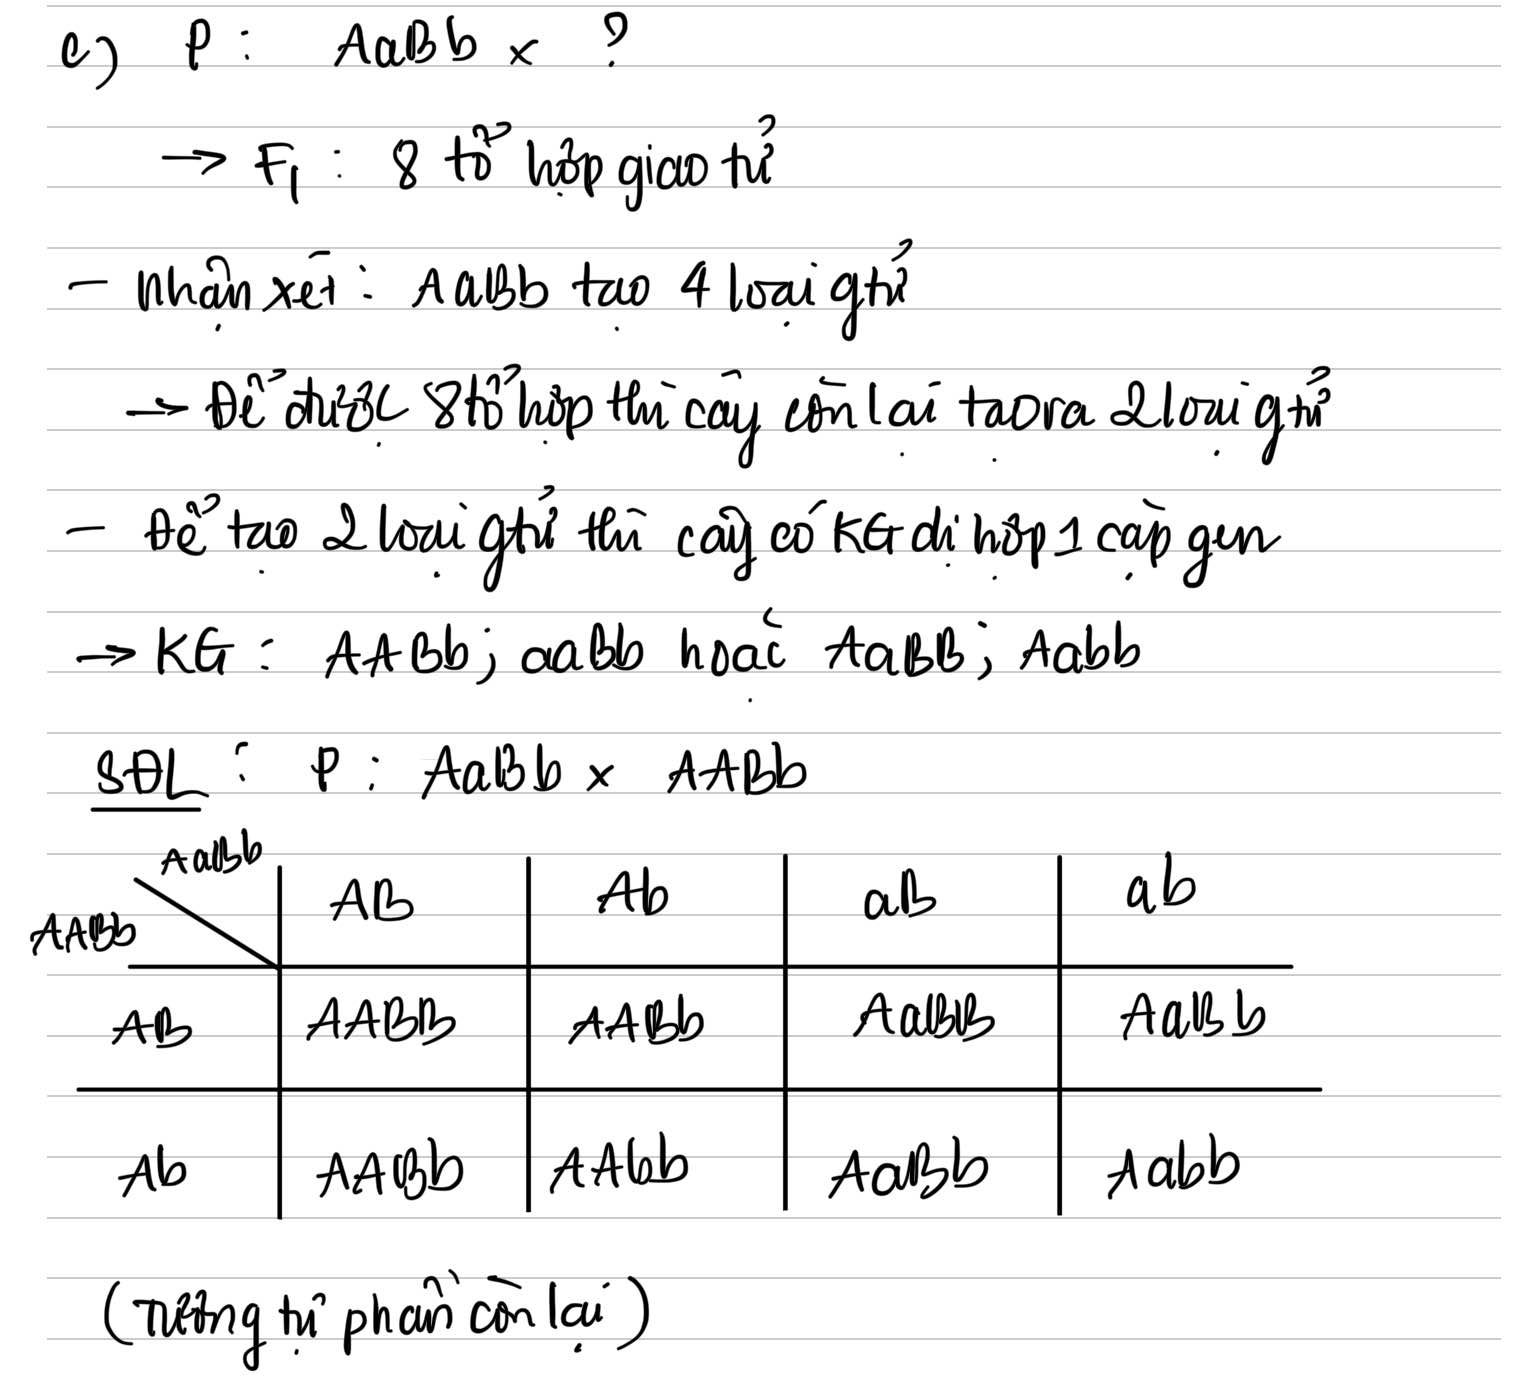 c) P : AaBb x ?
→ F1 : 8 tổ hợp giao tử
- Nhận xét : AaBb tạo 4 loại gtử
→ Để được 8 tổ hợp thì cây còn lại tạo ra 2 loại gtử
- Để tạo 2 loại gtử thì cây có KG dị hợp 1 cặp gen
→ KG : AABb ; aaBb hoặc AaBB ; Aabb
SĐL : P : AaBb x AABb
AaBb
AABb
AB Ab aB ab
AB AABB AABb AaBB AaBb
Ab AABb AAbb AaBb Aabb
(Tương tự phần còn lại)